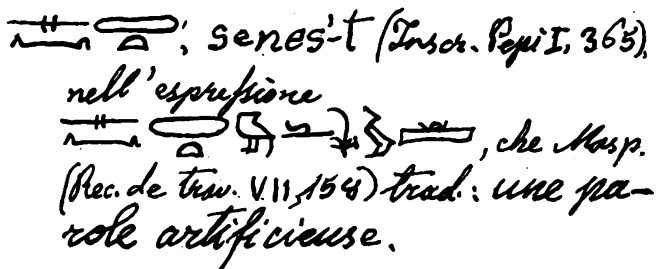 𓊃𓈖𓈙𓏏; senes'-t (Inscr. Pepi I, 365),
nell'espreſsione
𓊃𓈖𓈙𓏏 , che Masp.
(Rec. de trav. VII, 158) trad.: une pa-
role artificieuse.